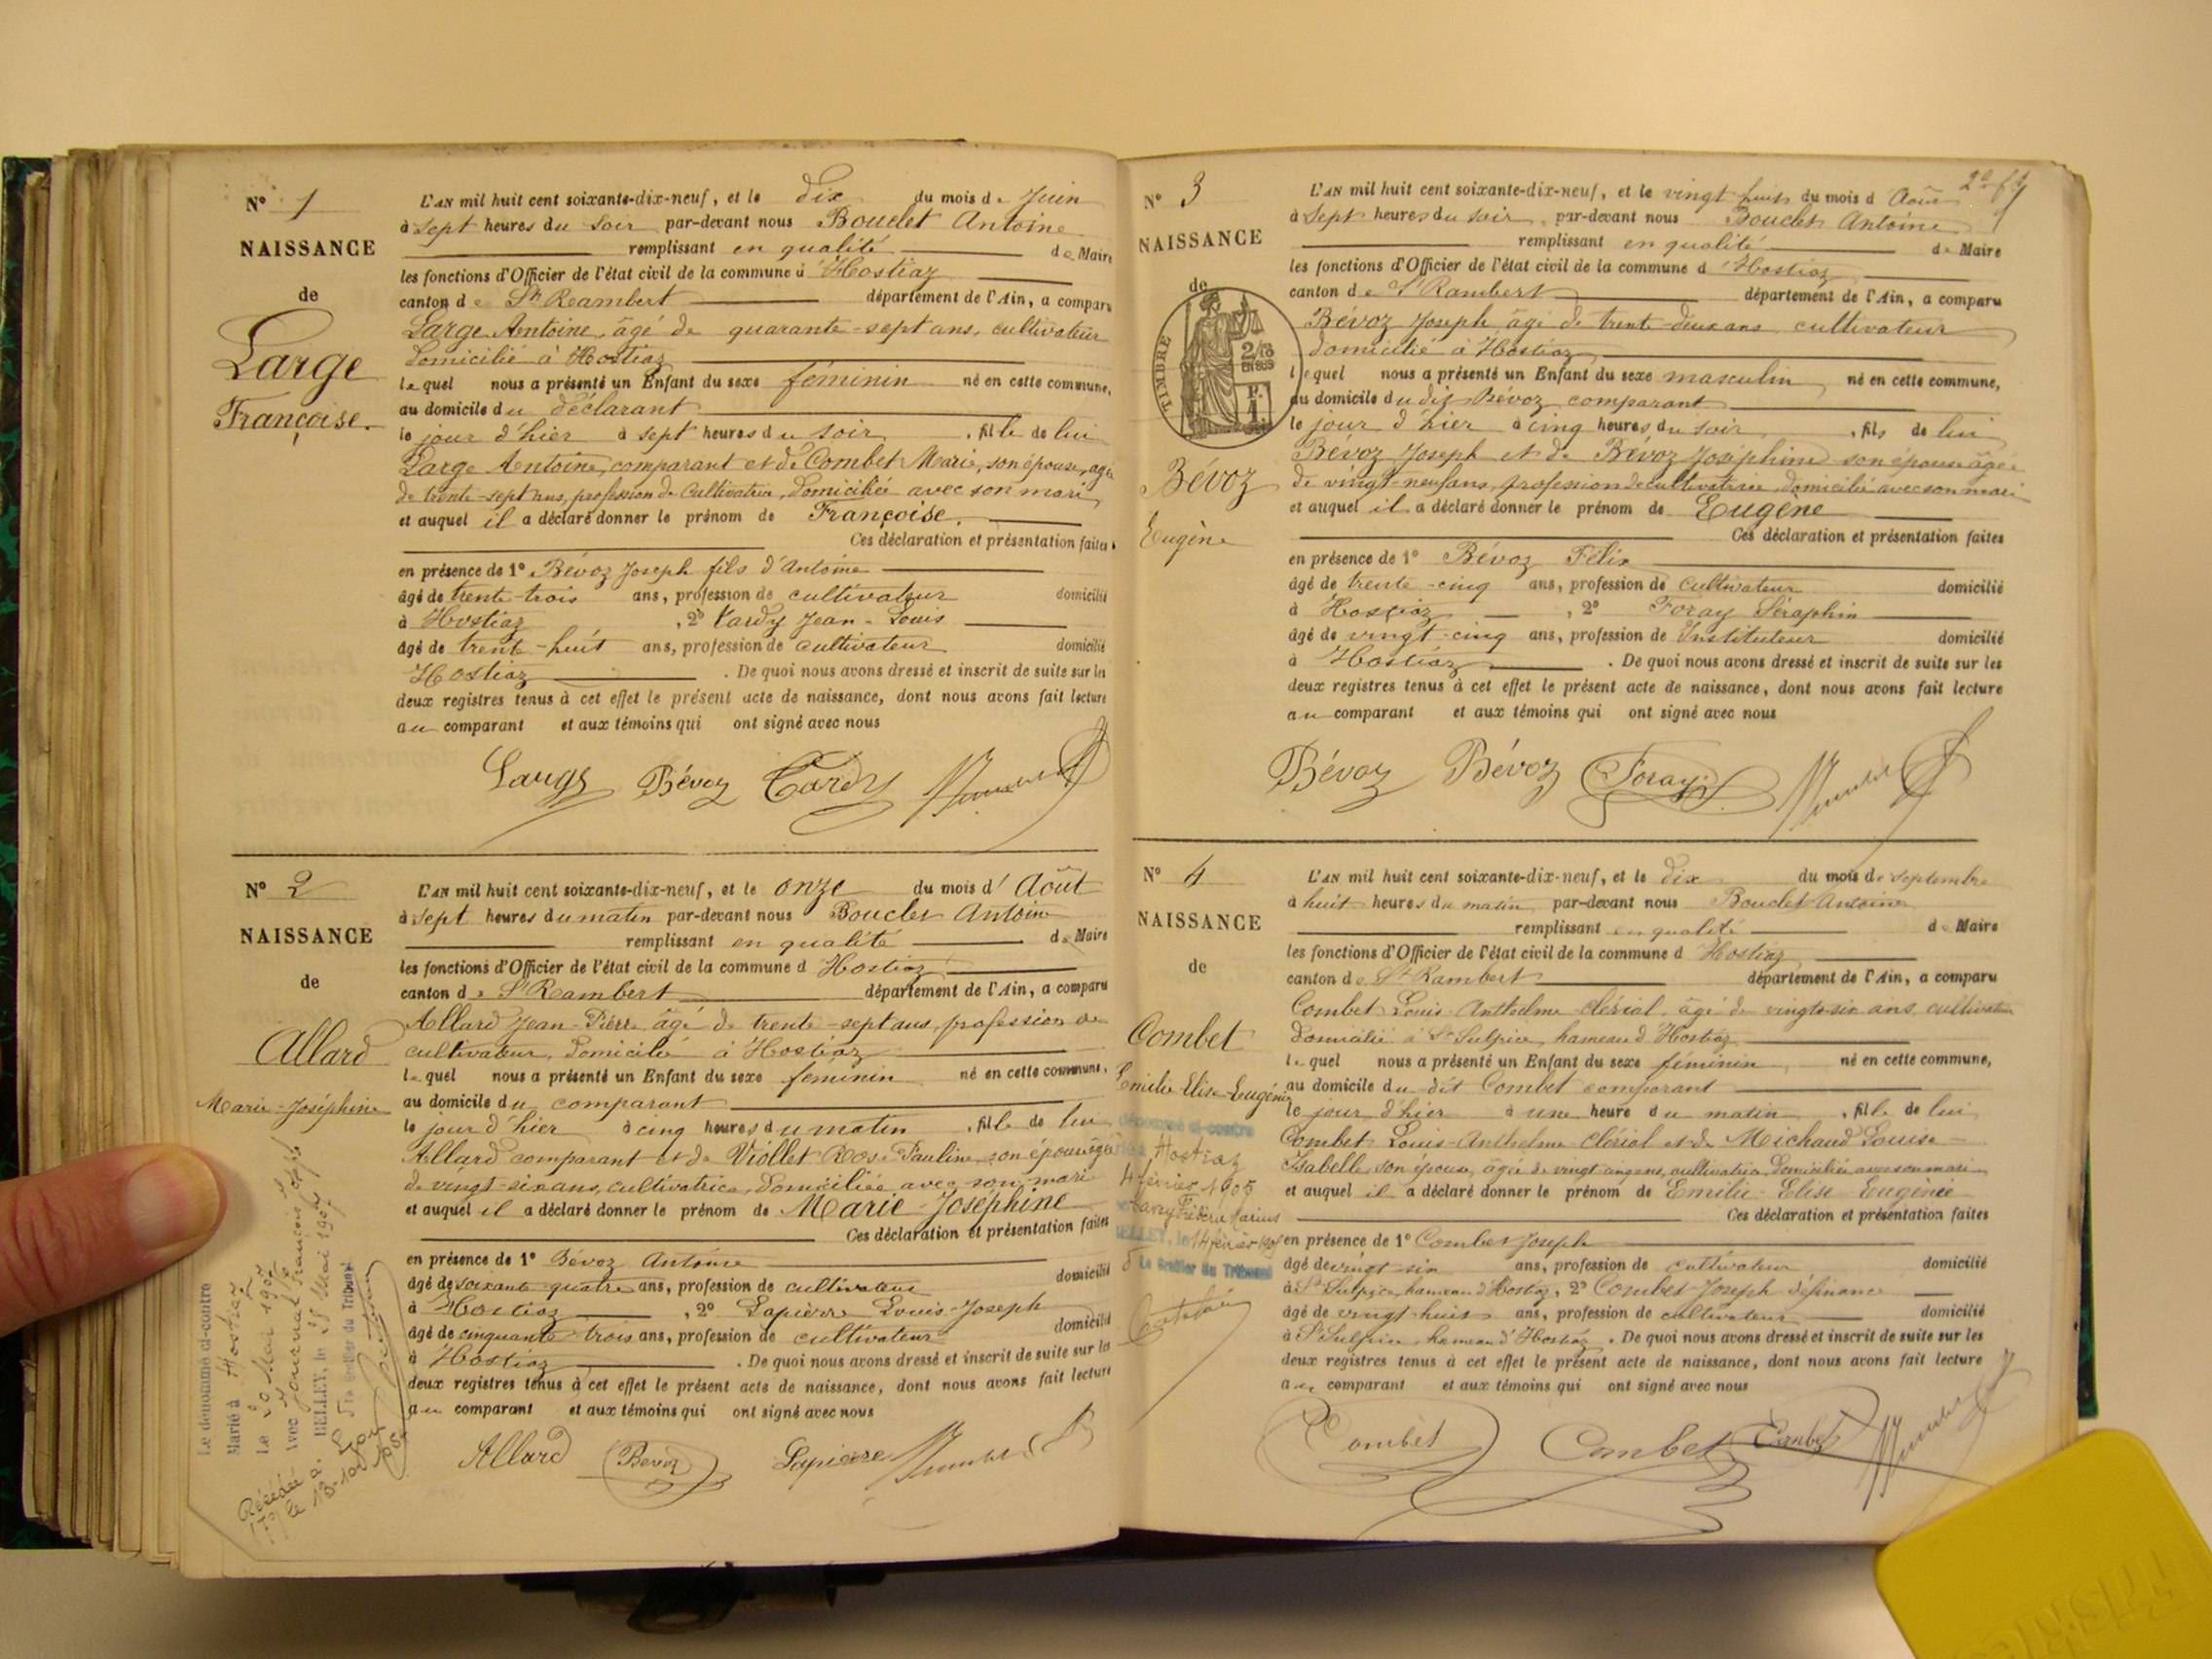 N° 1
NAISSANCE
de
Large
Françoise.
L'AN mil huit cent soixante-dix-neuf, et le dix du mois de Juin
à sept heures du soir par-devant nous Bouclet Antoine
remplissant en qualité de Maire
les fonctions d'Officier de l'état civil de la commune d'Hostiaz
canton de St Rambert département de l'Ain, a comparu
Large Antoine, âgé de quarante-sept ans, cultivateur
domicilié à Hostiaz
lequel nous a présenté un Enfant du sexe féminin né en cette commune,
au domicile du déclarant
le jour d'hier à sept heures du soir, fille de lui
Large Antoine, comparant et de Combet Marie, son épouse, âgée
de trente-sept ans, profession de cultivatrice, domiciliée avec son mari
et auquel il a déclaré donner le prénom de Françoise.
Ces déclaration et présentation faites
en présence de 1° Bévoz Joseph fils d'Antoine
âgé de trente-trois ans, profession de cultivateur domicilié
à Hostiaz, 2° Tardy Jean-Louis
âgé de trente-huit ans, profession de cultivateur domicilié
Hostiaz. De quoi nous avons dressé et inscrit de suite sur les
deux registres tenus à cet effet le présent acte de naissance, dont nous avons fait lecture
au comparant et aux témoins qui ont signé avec nous
Large Bévoz Tardy
N° 2
NAISSANCE
de
Allard
Marie-Joséphine
L'AN mil huit cent soixante-dix-neuf, et le onze du mois d'Août
à sept heures du matin par-devant nous Bouclet Antoine
remplissant en qualité de Maire
les fonctions d'Officier de l'état civil de la commune d'Hostiaz
canton de St Rambert département de l'Ain, a comparu
Allard Jean-Pierre âgé de trente-sept ans, profession de
cultivateur, domicilié à Hostiaz
lequel nous a présenté un Enfant du sexe féminin né en cette commune,
au domicile du comparant
le jour d'hier à cinq heures du matin, fille de lui
Allard comparant et de Viollet Rose Pauline, son épouse âgée
de vingt-six ans, cultivatrice, domiciliée avec son mari
et auquel il a déclaré donner le prénom de Marie-Joséphine
Ces déclaration et présentation faites
en présence de 1° Bévoz Antoine
âgé de soixante quatre ans, profession de cultivateur domicilié
à Hostiaz, 2° Lapierre Louis-Joseph
âgé de cinquante-trois ans, profession de cultivateur domicilié
à Hostiaz. De quoi nous avons dressé et inscrit de suite sur les
deux registres tenus à cet effet le présent acte de naissance, dont nous avons fait lecture
au comparant et aux témoins qui ont signé avec nous
Allard Bevoz Lapierre
Le dénommé ci-contre
Marié à Hostiaz
Le 20 Mai 1907
Avec Journal François
BELLEY, le 28 Mai 1907
Le Greffier du Tribunal
Décédée à Lyon
N° 3
NAISSANCE
de
TIMBRE
Bévoz
Eugène
L'AN mil huit cent soixante-dix-neuf, et le vingt huit du mois d'Août
à sept heures du soir, par-devant nous Bouclet Antoine
remplissant en qualité de Maire
les fonctions d'Officier de l'état civil de la commune d'Hostiaz
canton de St Rambert département de l'Ain, a comparu
Bévoz Joseph âgé de trente-deux ans cultivateur
domicilié à Hostiaz
lequel nous a présenté un Enfant du sexe masculin, né en cette commune,
au domicile du dit Bévoz comparant
le jour d'hier à cinq heures du soir, fils de lui
Bévoz Joseph et de Bévoz Joséphine son épouse âgée
de vingt-neuf ans, profession de cultivatrice domiciliée avec son mari
et auquel il a déclaré donner le prénom de Eugène
Ces déclaration et présentation faites
en présence de 1° Bévoz Félix
âgé de trente-cinq ans, profession de cultivateur domicilié
à Hostiaz, 2° Foray Séraphin
âgé de vingt-cinq ans, profession de Instituteur domicilié
à Hostiaz. De quoi nous avons dressé et inscrit de suite sur les
deux registres tenus à cet effet le présent acte de naissance, dont nous avons fait lecture
au comparant et aux témoins qui ont signé avec nous
Bévoz Bévoz Foray
N° 4
NAISSANCE
de
Combet
Emilie Elise-Eugénie
L'AN mil huit cent soixante-dix-neuf, et le dix du mois de septembre
à huit heures du matin, par-devant nous Bouclet Antoine
remplissant en qualité de Maire
les fonctions d'Officier de l'état civil de la commune d'Hostiaz
canton de St Rambert département de l'Ain, a comparu
Combet Louis Anthelme Clérial, âgé de vingt-six ans, cultivateur
domicilié à St Sulpice, hameau d'Hostiaz
lequel nous a présenté un Enfant du sexe féminin, né en cette commune,
au domicile du dit Combet comparant
le jour d'hier à une heure du matin, fille de lui
Combet Louis-Anthelme Clérial et de Michaud Louise-
Isabelle son épouse, âgée de vingt ans, cultivatrice domiciliée avec son mari
et auquel il a déclaré donner le prénom de Emilie-Elise Eugénie
Ces déclaration et présentation faites
en présence de 1° Combet Joseph
âgé de vingt-six ans, profession de cultivateur domicilié
à St Sulpice, hameau d'Hostiaz, 2° Combet Joseph
âgé de vingt-huit ans, profession de cultivateur domicilié
à St Sulpice hameau d'Hostiaz. De quoi nous avons dressé et inscrit de suite sur les
deux registres tenus à cet effet le présent acte de naissance, dont nous avons fait lecture
au comparant et aux témoins qui ont signé avec nous
Combet Combet Combet
ci-contre
Hostiaz
4 février 1905
Marius
BELLEY, le 14 février 1905
Le Greffier du Tribunal